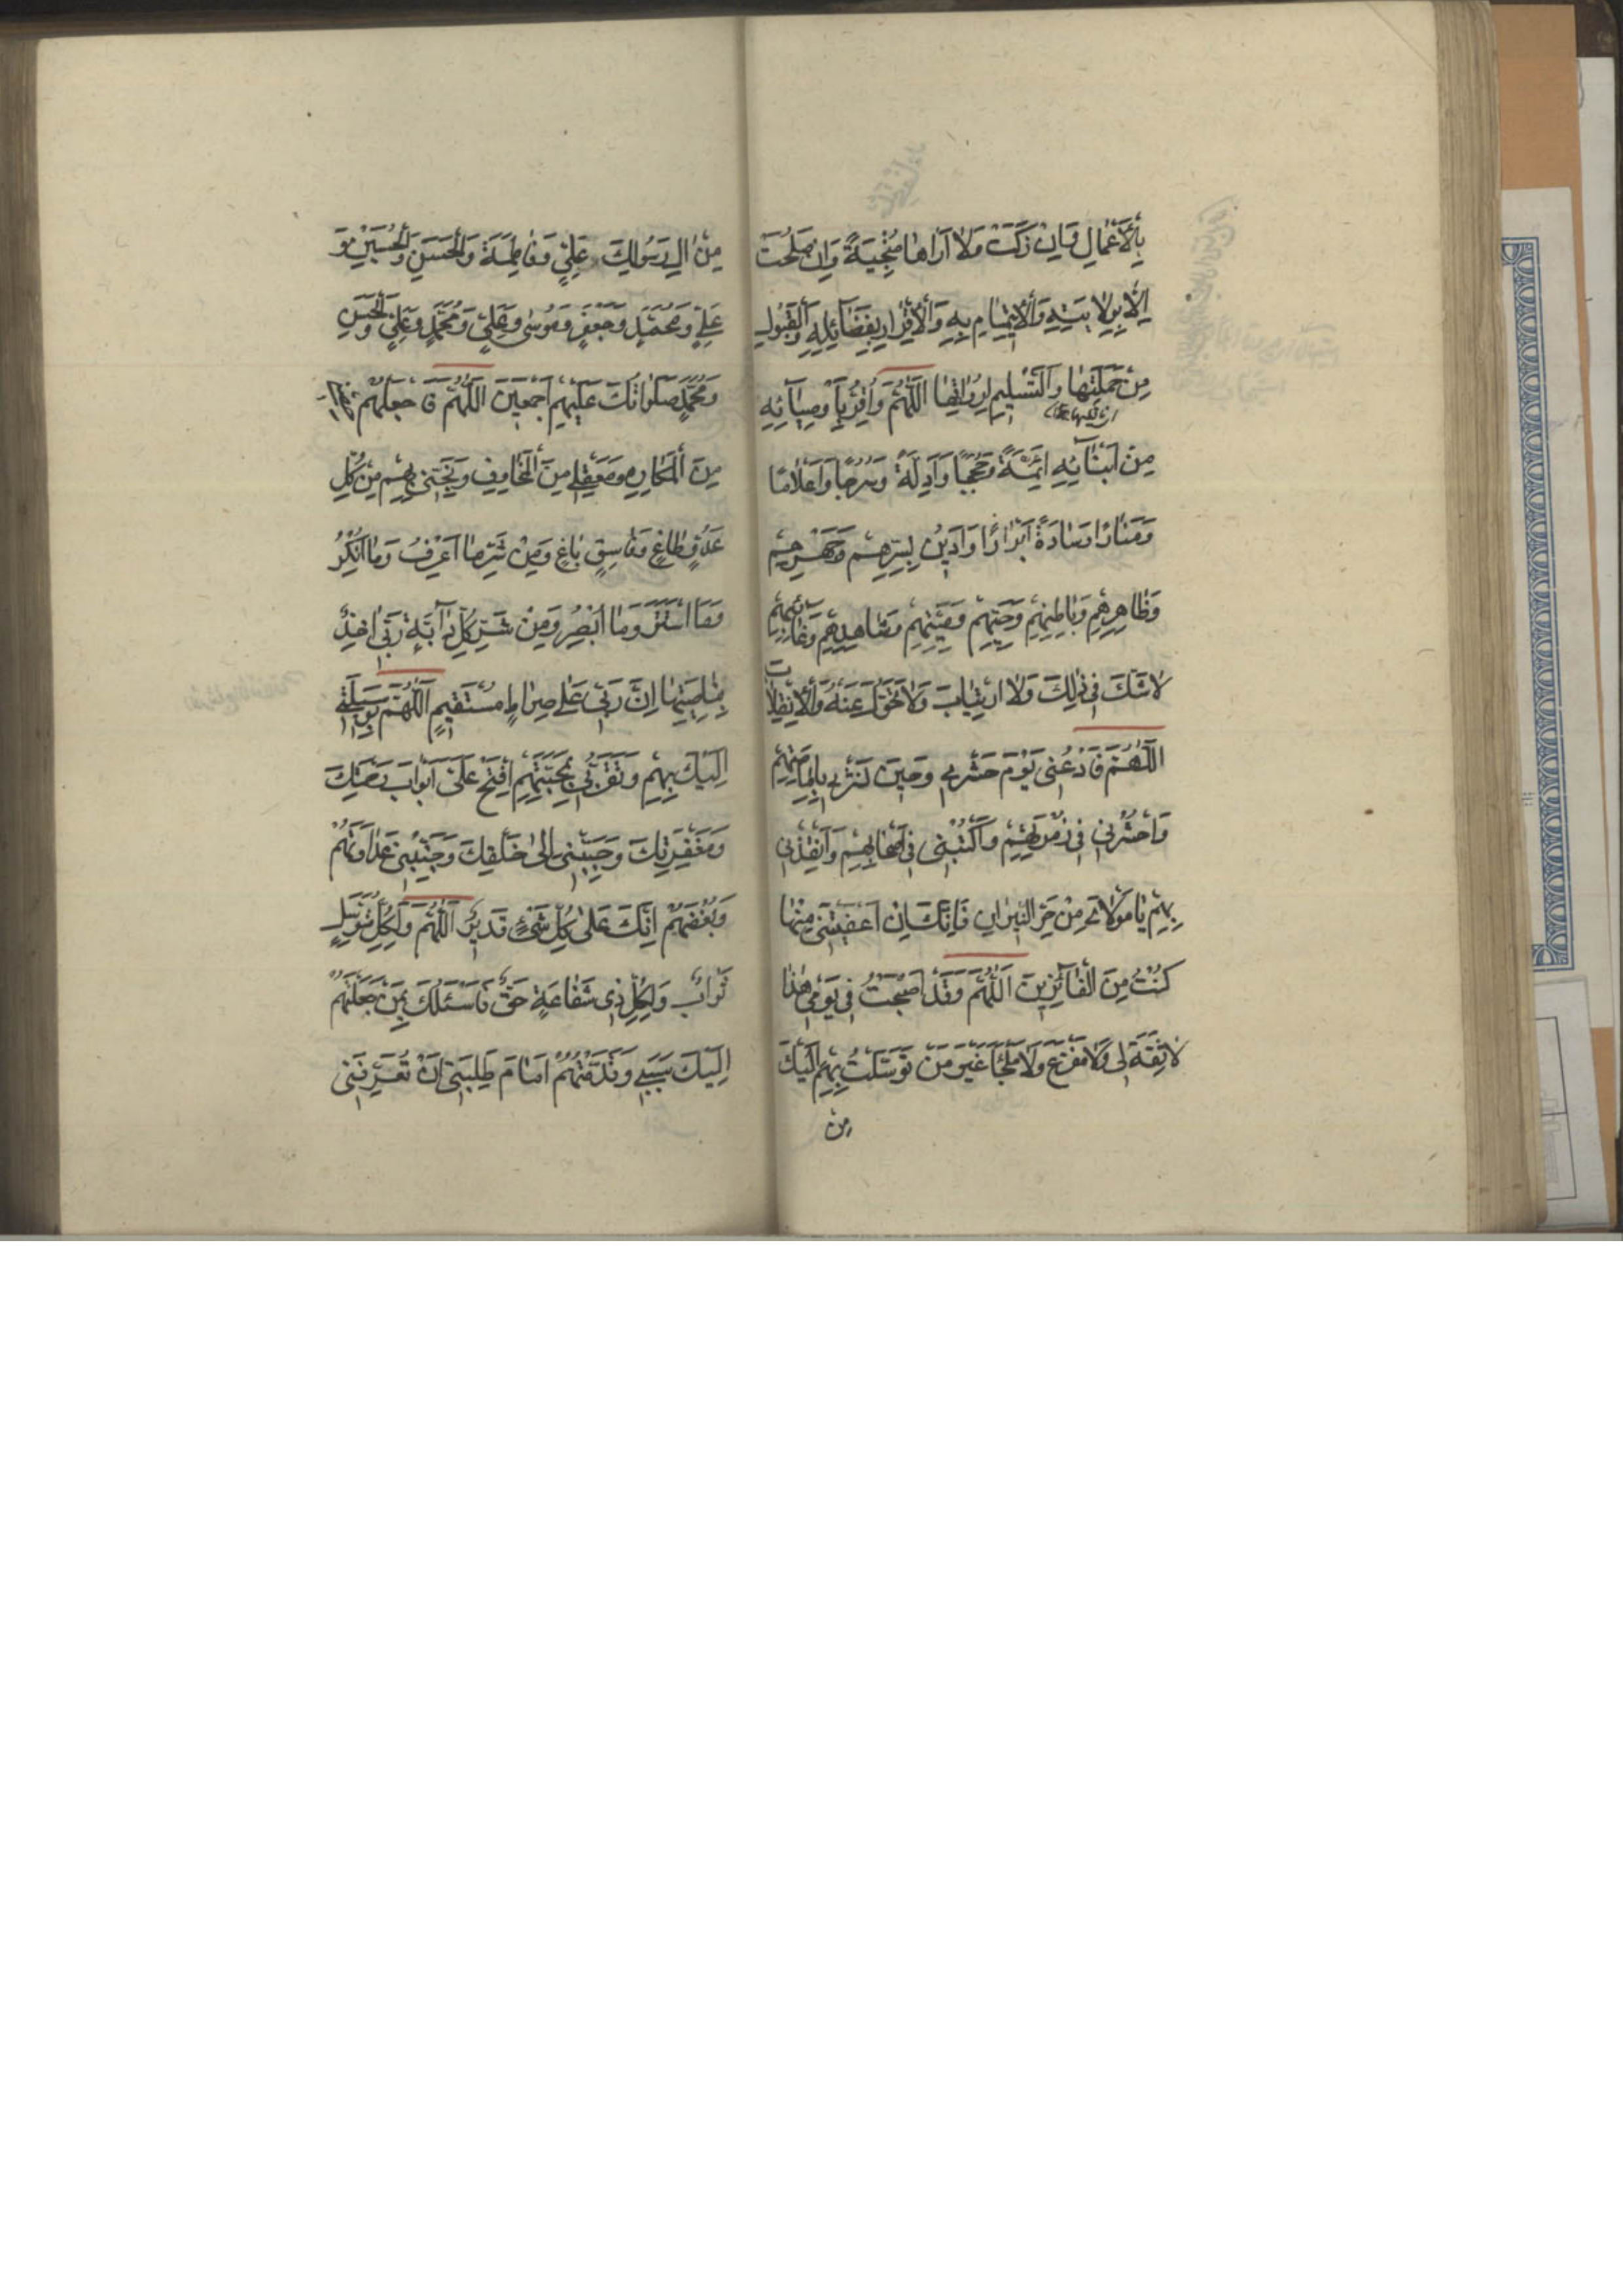 بِالْاَعْمٰالِ وَاِنْ زَكَتْ وَلٰا اَرٰاهٰا مُنْجِيَةً وَاِنْ صَلُحَتْ
اِلّٰا بِوِلٰايَتِهِ وَالْاِيْتِمٰامِ بِهِ وَالْاِقْرٰارِ بِفَضٰائِلِهِ وَالْقَبُولِ
مِنْ حَمَلَتِهٰا وَالتَّسْلِيمِ لِرُوٰاتِهٰا اَللّٰهُمَّ وَاُقِرُّ بِاَوْصِيٰآئِهِ
مِنْ اَبْنٰائِهِ اَئِمَّةً وَحُجَجًا وَاَدِلَّةً وَسُرُجًا وَاَعْلٰامًا
وَمَنٰارًا وَسٰادَةً اَبْرٰارًا وَاَدِينُ بِسِرِّهِمْ وَجَهْرِهِمْ
وَظٰاهِرِهِمْ وَبٰاطِنِهِمْ وَحَيِّهِمْ وَمَيِّتِهِمْ وَشٰاهِدِهِمْ وَغٰائِبِهِمْ
لٰا شَكَّ فِي ذٰلِكَ وَلَا ارْتِيٰابَ وَلٰا تَحَوُّلَ عَنْهُ وَلَا انْقِلٰابَ
اَللّٰهُمَّ فَادْعُنِي يَوْمَ حَشْرِي وَحِينَ نَشْرِي بِاِمٰامَتِهِمْ
وَاحْشُرْنِي فِي زُمْرَتِهِمْ وَاكْتُبْنِي فِي اَصْحٰابِهِمْ وَاَنْقِذْنِي
بِهِمْ يٰا مَوْلٰايَ مِنْ حَرِّ النِّيرٰانِ فَاِنَّكَ اِنْ اَعْفَيْتَنِي مِنْهٰا
كُنْتُ مِنَ الْفٰآئِزِينَ اَللّٰهُمَّ وَقَدْ اَصْبَحْتُ فِي يَوْمِي هٰذٰا
لٰا ثِقَةَ لِي وَلٰا مَفْزَعَ وَلٰا مَلْجَأَ غَيْرَ مَنْ تَوَسَّلْتُ بِهِمْ اِلَيْكَ
مِنْ
مِنْ اٰلِ رَسُولِكَ عَلِيٍّ وَفٰاطِمَةَ وَالْحَسَنِ وَالْحُسَيْنِ وَ
عَلِيٍّ وَمُحَمَّدٍ وَجَعْفَرٍ وَمُوسٰى وَعَلِيٍّ وَمُحَمَّدٍ وَعَلِيٍّ وَالْحَسَنِ
وَمُحَمَّدٍ صَلَوٰاتُكَ عَلَيْهِمْ اَجْمَعِينَ اَللّٰهُمَّ فَاجْعَلْهُمْ
مِنَ الْمَكٰارِهِ وَمَعْقِلِي مِنَ الْمَخٰاوِفِ وَنَجِّنِي بِهِمْ مِنْ كُلِّ
عَدُوٍّ طٰاغٍ وَفٰاسِقٍ بٰاغٍ وَمِنْ شَرِّ مٰا اَعْرِفُ وَمٰا اُنْكِرُ
وَمَا اسْتَتَرَ وَمٰا اُبْصِرُ وَمِنْ شَرِّ كُلِّ دٰآبَّةٍ رَبِّي اٰخِذٌ
بِنٰاصِيَتِهٰا اِنَّ رَبِّي عَلٰى صِرٰاطٍ مُسْتَقِيمٍ اَللّٰهُمَّ بِوَسِيلَتِي
اِلَيْكَ بِهِمْ وَتَقَرُّبِي بِمَحَبَّتِهِمْ اِفْتَحْ عَلَيَّ اَبْوٰابَ رَحْمَتِكَ
وَمَغْفِرَتِكَ وَحَبِّبْنِي اِلٰى خَلْقِكَ وَجَنِّبْنِي عَدٰاوَتَهُمْ
وَبُغْضَهُمْ اِنَّكَ عَلٰى كُلِّ شَيْءٍ قَدِيرٌ اَللّٰهُمَّ وَلِكُلِّ مُتَوَسِّلٍ
ثَوٰابٌ وَلِكُلِّ ذِي شَفٰاعَةٍ حَقٌّ فَاَسْئَلُكَ بِمَنْ جَعَلْتَهُمْ
اِلَيْكَ سَبَبِي وَقَدَّمْتُهُمْ اَمٰامَ طَلِبَتِي اَنْ تُعَرِّفَنِي